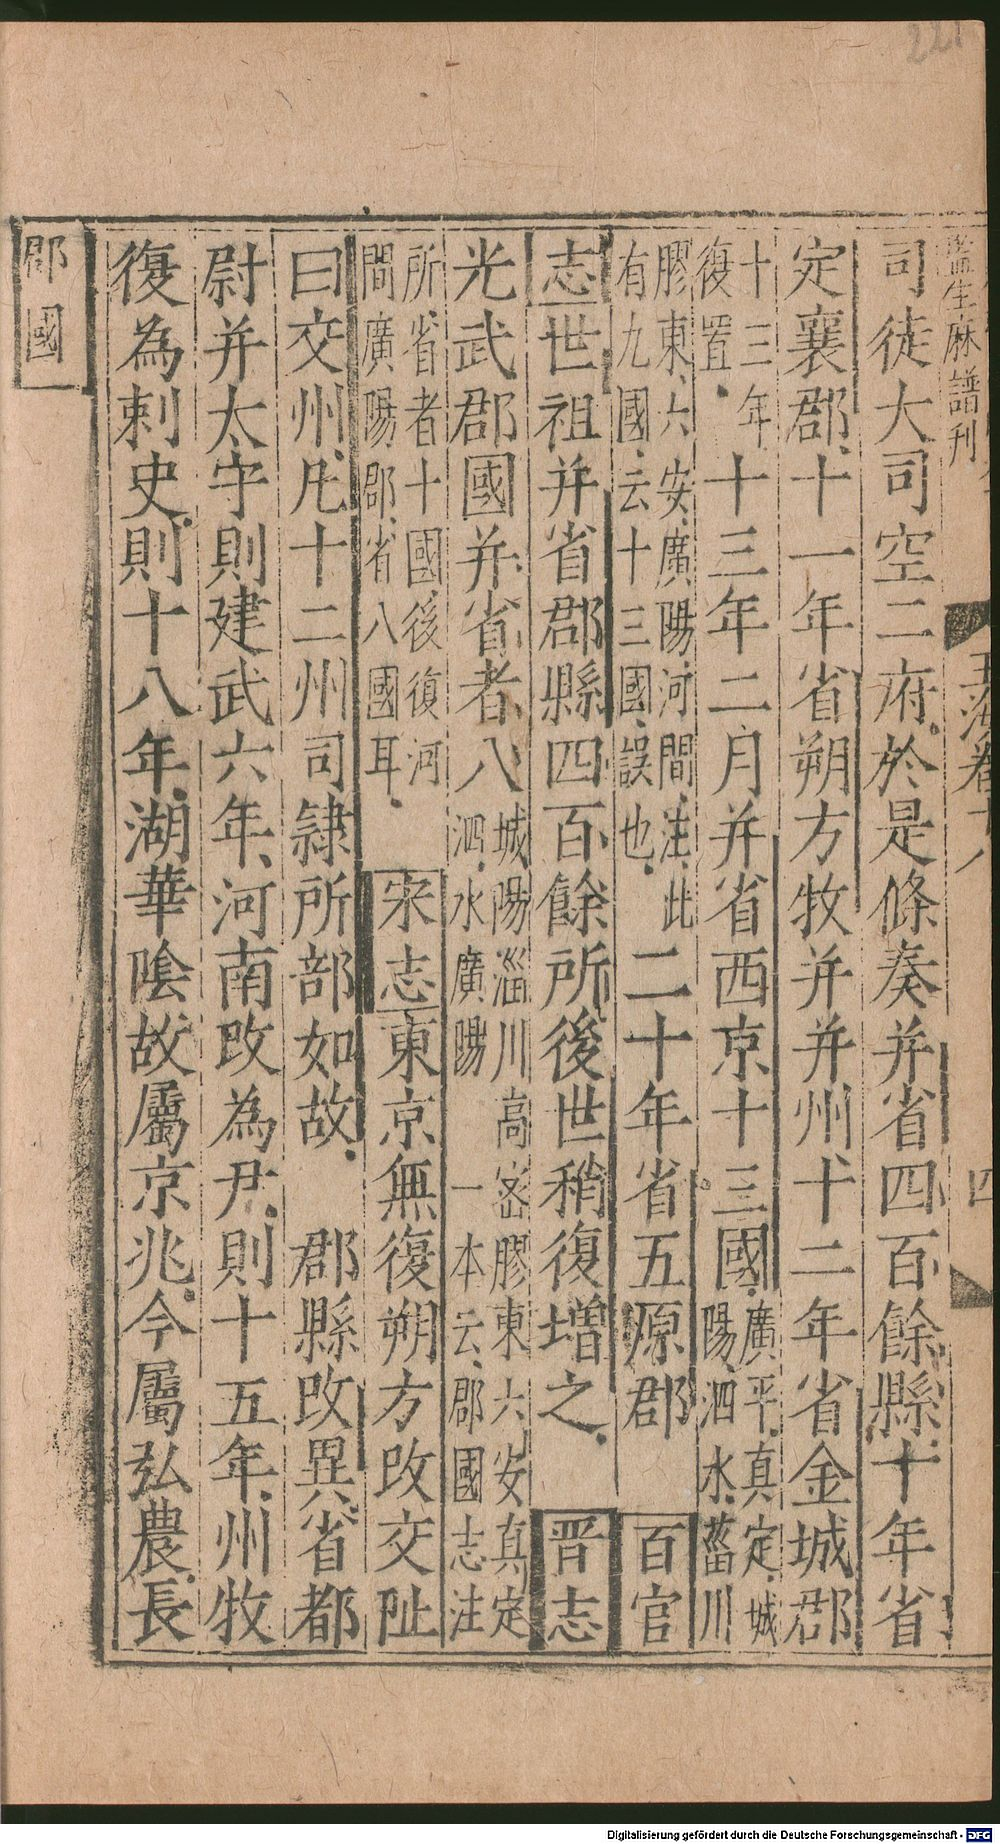 221
監生麻譜刊
玉海卷十八
四
司徒大司空二府於是條奏并省四百餘縣十年省
定襄郡十一年省朔方牧并并州十二年省金城郡
十三年復置十三年二月并省西京十三國廣平真定城陽泗水菑川
膠東六安廣陽河間注此有九國云十三國誤也二十年省五原郡 百官
志世祖并省郡縣四百餘所後世稍復增之 晋志
光武郡國并省者八城陽淄川高密膠東六安真定泗水廣陽一本云郡國志注
所省者十國後復河間廣陽郡省八國耳 宋志東京無復朔方改交阯
曰交州凡十二州司隷所部如故 郡縣改異省都
尉并太守則建武六年河南改為尹則十五年州牧
復為刺史則十八年湖華陰故屬京兆今屬弘農長
郡國
Digitalisierung gefördert durch die Deutsche Forschungsgemeinschaft - DFG